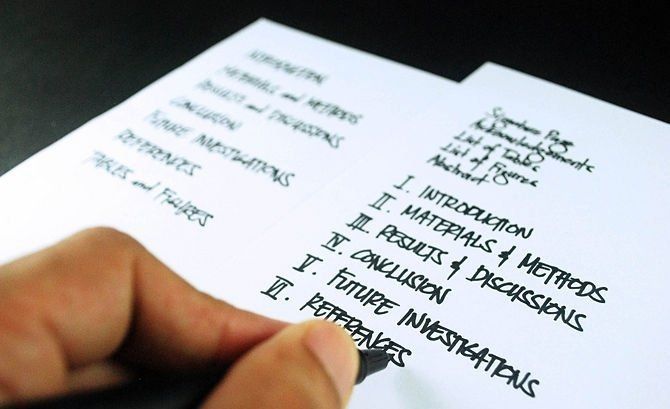 INTRODUCTION
MATERIALS and METHODS
RESULTS and DISCUSSIONS
CONCLUSION
FUTURE INVESTIGATIONS
REFERENCES
TABLES and FIGURES
Signature Page
Acknowledgements
List of Tables
List of Figures
Abstract
I. INTRODUCTION
II. MATERIALS & METHODS
III. RESULTS & DISCUSSIONS
IV. CONCLUSION
V. FUTURE INVESTIGATIONS
VI. REFERENCES